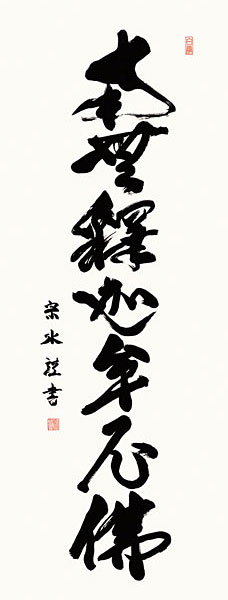 南無釋迦牟尼佛
宗水謹書